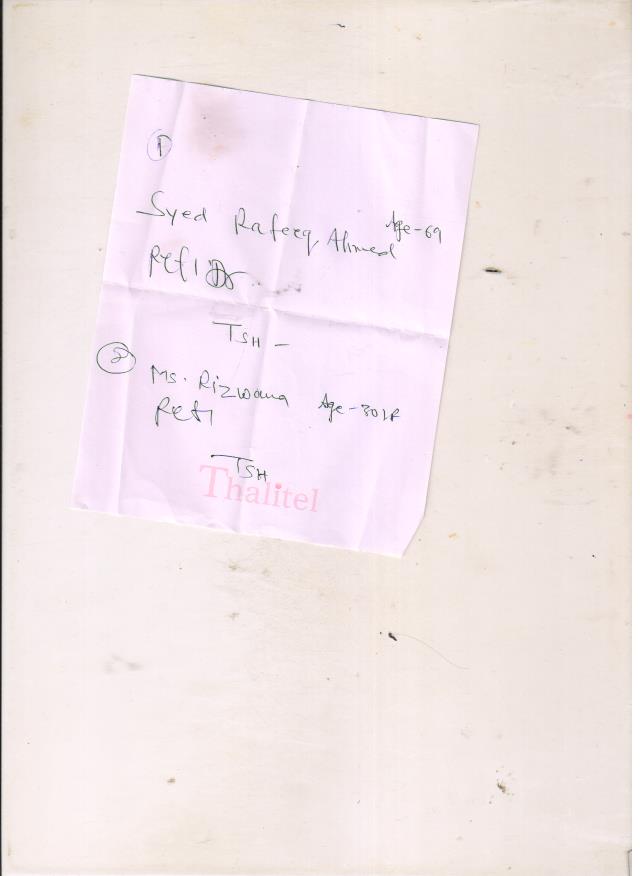 1
Syed Rafeeq Ahmed Age-69
Ref1
TSH -
2
Ms. Rizwana Age-30/F
Ref1
TSH
Thalitel